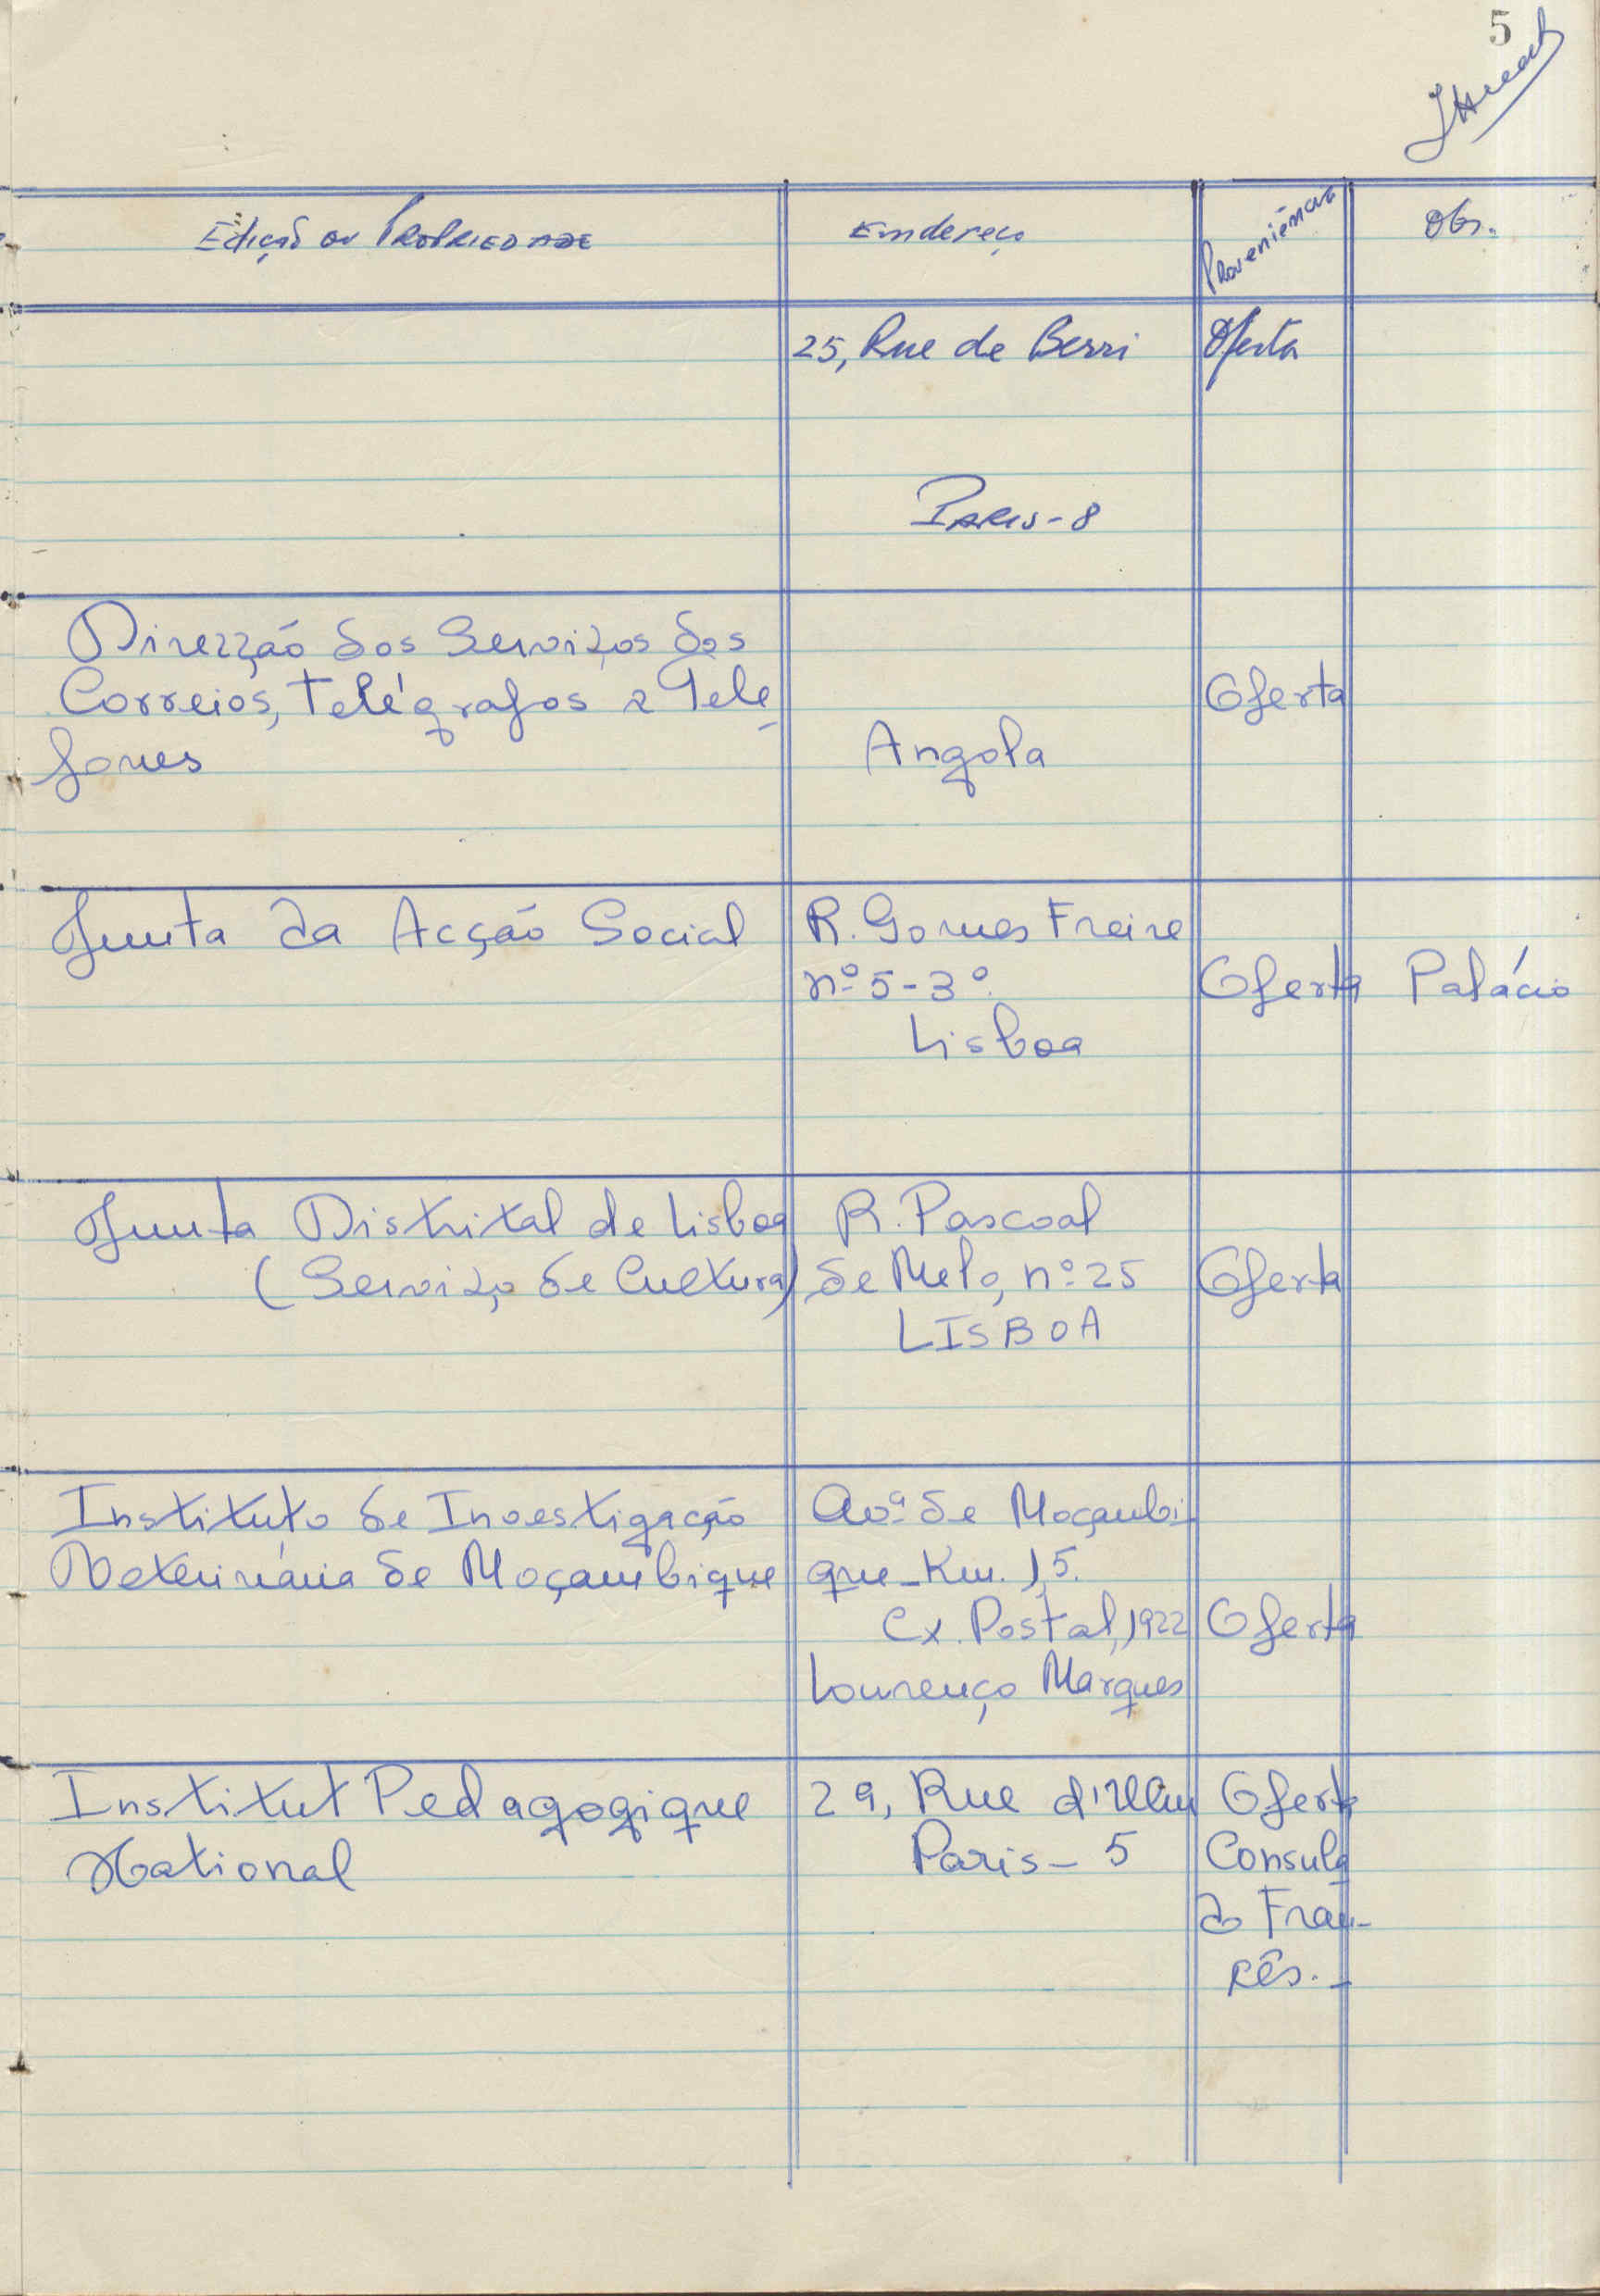 5
Edição ou Propriedade Endereço Proveniência Obs.
25, Rue de Berri Oferta
Paris-8
Direcção dos Serviços dos
Correios, Telégrafos e Tele Oferta
fones Angola
Junta da Acção Social R. Gomes Freire
nº 5-3º. Oferta Palácio
Lisboa
Junta Distrital de Lisboa R. Pascoal
(Serviço de Cultura) de Melo, nº 25 Oferta
LISBOA
Instituto de Investigação Avª de Moçambi
Veterinária de Moçambique que-Km. 1,5.
Cx. Postal, 1922 Oferta
Lourenço Marques
Institut Pedagogique 29, Rue d'Ulm Oferta
National Paris-5 Consula
do Fran-
cês.-